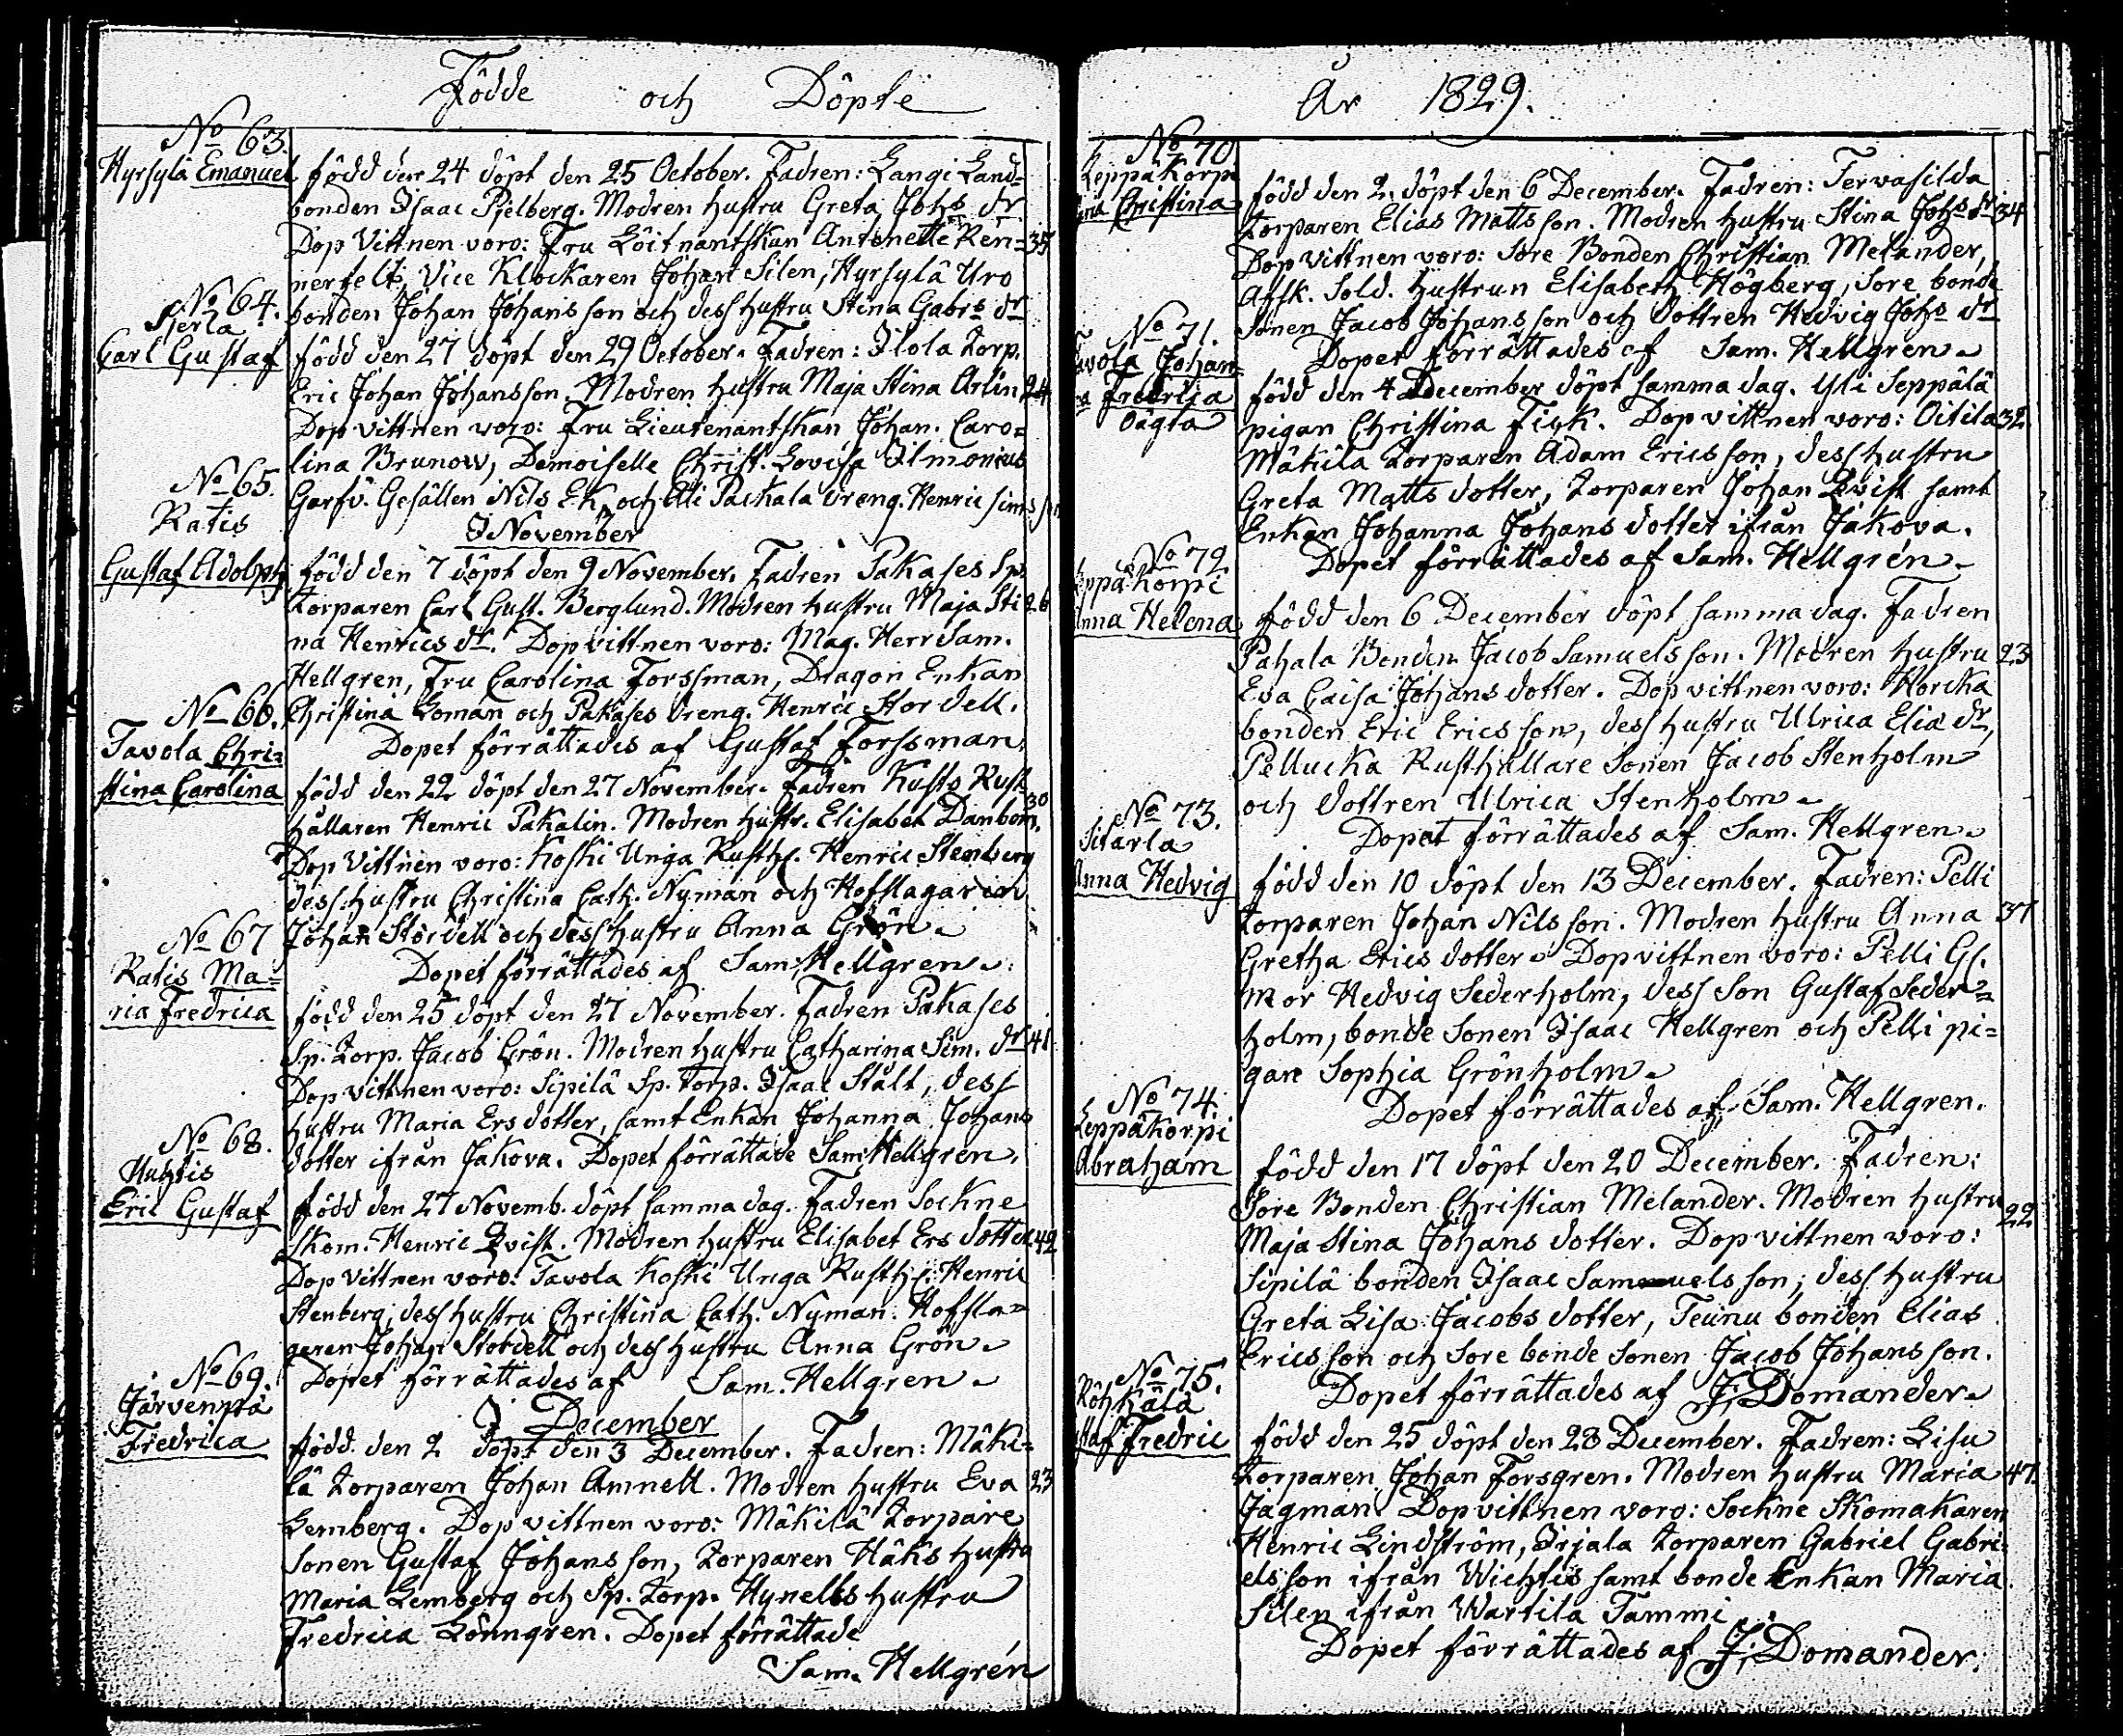 Födde och Döpte
No 63.
Hyrsylä Emanuel
född den 24 döpt den 25 October. Fadren: Langi Land-
bonden Isaac Pjelberg. Modren hustru Greta Johs dr
Dop Vittnen voro: Fru Löitnantskan Antonette Ren- 35
nerfelt, Vice Klockaren Johan Silen, Hyrsylä Uro
bonden Johan Johansson och dess hustru Stina Gabrs dr
No 64.
Sjerla
Carl Gustaf
född den 27 döpt den 29 October. Fadren: Ilola Torp.
Eric Johan Johansson. Modren hustru Maja Stina Arlin 24
Dop vittnen voro: Fru Lieutenantskan Johan. Caro-
lina Brunow, Demoiselle Christ. Lovisa Ilmonius
Garfv. Gesällen Nils Ek och Ali Packala dreng. Henric Simsson
I November
No 65.
Ratis
Gustaf Adolph
född den 7 döpt den 9 November. Fadren Pakases Sp.
Torparen Carl Gust. Berglund. Modren hustru Maja Sti 26
na Henrics dr. Dopvittnen voro: Mag. Herr Sam.
Hellgren, Fru Carolina Forssman, Dragon Enkan
Christina Loman och Pakases dreng. Henric Stordell.
Dopet förrättades af Gustaf Forssman.
No 66.
Tavola Chri-
stina Carolina
född den 22 döpt den 27 November. Fadren Kusto Rust-
hållaren Henric Pakalin. Modren hustr. Elisabet Danbom. 30
Dop Vittnen voro: Koski Unga Rusth. Henric Stenberg
dess hustru Christina Cath. Nyman och Hofslagaren
Johan Stordell och dess hustru Anna Grön.
Dopet förrättades af Sam. Hellgren.
No 67
Ratis Ma-
ria Fredrica
född den 25 döpt den 27 November. Fadren Pakases
Sp. Torp. Jacob Grön. Modren hustru Catharina Sim. dr 41
Dop vittnen voro: Sipilä Sp. Torp. Isaac Stålt, dess
hustru Maria Ersdotter, samt Enkan Johanna Johans
dotter ifrån Jakova. Dopet förrättade Sam. Hellgren.
No 68.
Huhtis
Eric Gustaf
född den 27 Novemb. döpt samma dag. Fadren Sockne
Skom. Henric Qvist. Modren hustru Elisabet Ers dotter 42
Dop Vittnen voro: Tavola Koski Unga Rusth. Henric
Stenberg, dess hustru Christina Cath. Nyman. Hofsla-
garen Johan Stordell och dess hustru Anna Grön.
Dopet förrättades af Sam. Hellgren.
I December
No 69.
Järvenpää
Fredrica
född den 2 döpt den 3 December. Fadren: Mäki-
lä Torparen Johan Amnell. Modren hustru Eva 23
Lemberg. Dop vittnen voro: Mäkilä Torpare
Sonen Gustaf Johansson, Torparen Häks hustru
Maria Lemberg och Sp. Torp. Hynells hustru
Fredrica Lönngren. Dopet förrättade
Sam. Hellgren
År 1829.
No 70.
Leppäkorpi
Christina
född den 2. döpt den 6 December. Fadren: Tervasilda
Torparen Elias Mattsson. Modren hustru Stina Johs dr 34
Dop vittnen voro: Sore Bonden Christian Melander,
Afsk. Sold. hustrun Elisabeth Högberg, Sore bonde
Sonen Jacob Johansson och dottren Hedvig Johs dr
Dopet förrättades af Sam. Hellgren.
No 71.
Tavola Johan-
na Fredrica
Oägta
född den 4 December döpt samma dag. Yli Seppälä
pigan Christina Fisk. Dop vittnen voro: Oitila 32
Mäkilä Torparen Adam Ericsson, dess hustru
Greta Matts dotter, Torparen Johan Qvist samt
Enkan Johanna Johans dotter ifrån Jakova.
Dopet förrättades af Sam. Hellgren.
No 72.
Leppäkorpi
Anna Helena
född den 6 December döpt samma dag. Fadren
Pahala Bonden Jacob Samuelsson. Modren hustru 23
Eva Caisa Johans dotter. Dop vittnen voro: Horcka
bonden Eric Ericsson, dess hustru Ulrica Elia dr,
Pellucka Rusthållare Sonen Jacob Stenholm
och dottren Ulrica Stenholm.
Dopet förrättades af Sam. Hellgren.
No 73.
Sitarla
Anna Hedvig
född den 10 döpt den 13 December. Fadren: Pelli
Torparen Johan Nilsson. Modren hustru Anna 37
Gretha Erics dotter. Dopvittnen voro: Pelli Gl.
mor Hedvig Sederholm, dess Son Gustaf Seder-
holm, bonde Sonen Isaac Hellgren och Pelli pi-
gan Sophia Grönholm.
Dopet förrättades af Sam. Hellgren.
No 74.
Leppäkorpi
Abraham
född den 17 döpt den 20 December. Fadren:
Sore Bonden Christian Melander. Modren hustru 22
Maja Stina Johans dotter. Dop vittnen voro:
Sipilä bonden Isaac Samuelsson, dess hustru
Greta Lisa Jacobs dotter, Teunu bonden Elias
Ericsson och Sore bonde Sonen Jacob Johansson.
Dopet förrättades af J. Domander.
No 75.
Röhkälä
staf Fredric
född den 25 döpt den 28 December. Fadren: Lisu
Torparen Johan Forsgren. Modren hustru Maria 47.
Jägman. Dopvittnen voro: Sockne Skomakaren
Henric Lindström, Irjala Torparen Gabriel Gabri-
elsson ifrån Wichtis samt bonde Enkan Maria
Silen ifrån Wartila Tammi.
Dopet förrättades af J. Domander.